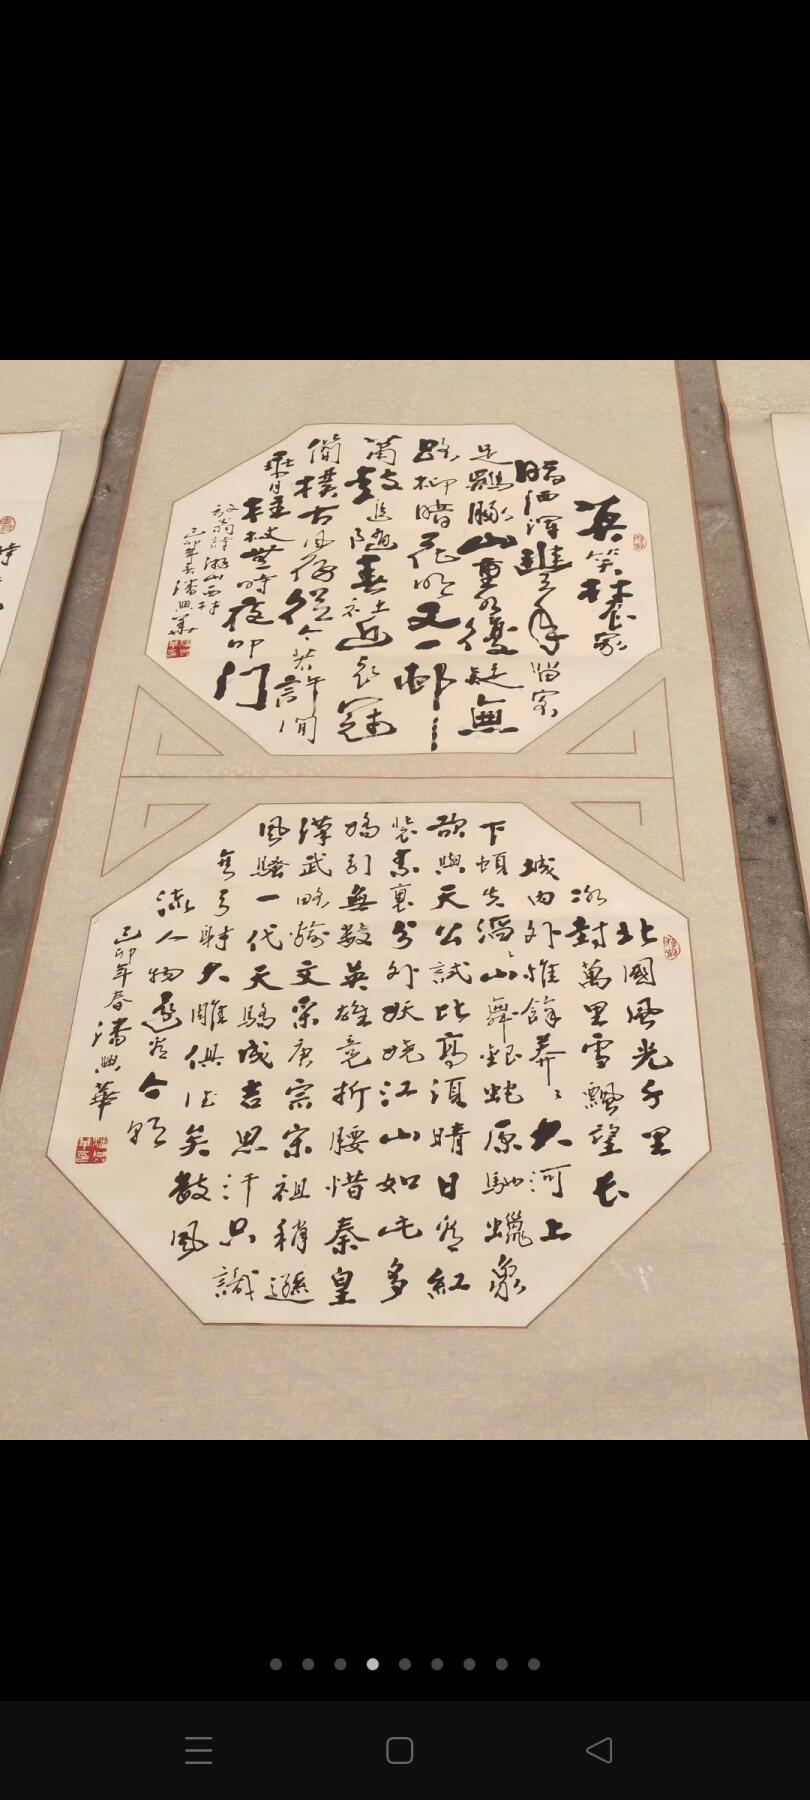 莫笑農家
臘酒渾豐年留客
足雞豚山重水複疑無
路柳暗花明又一邨
簫鼓追隨春社近衣冠
簡樸古風存從今若許閒
乘月拄杖無時夜叩門
放翁詩遊山西村
己卯年春潘興華
北國風光千里
冰封萬里雪飄望長
城內外惟餘莽々大河上
下頓失滔々山舞銀蛇原馳蠟象
欲與天公試比高須晴日看紅
裝素裹分外妖嬈江山如此多
嬌引無數英雄竞折腰惜秦皇
漢武略輸文采唐宗宋祖稍遜
風騷一代天驕成吉思汗只識
彎弓射大雕俱往矣數風
流人物還看今朝
己卯年春潘興華